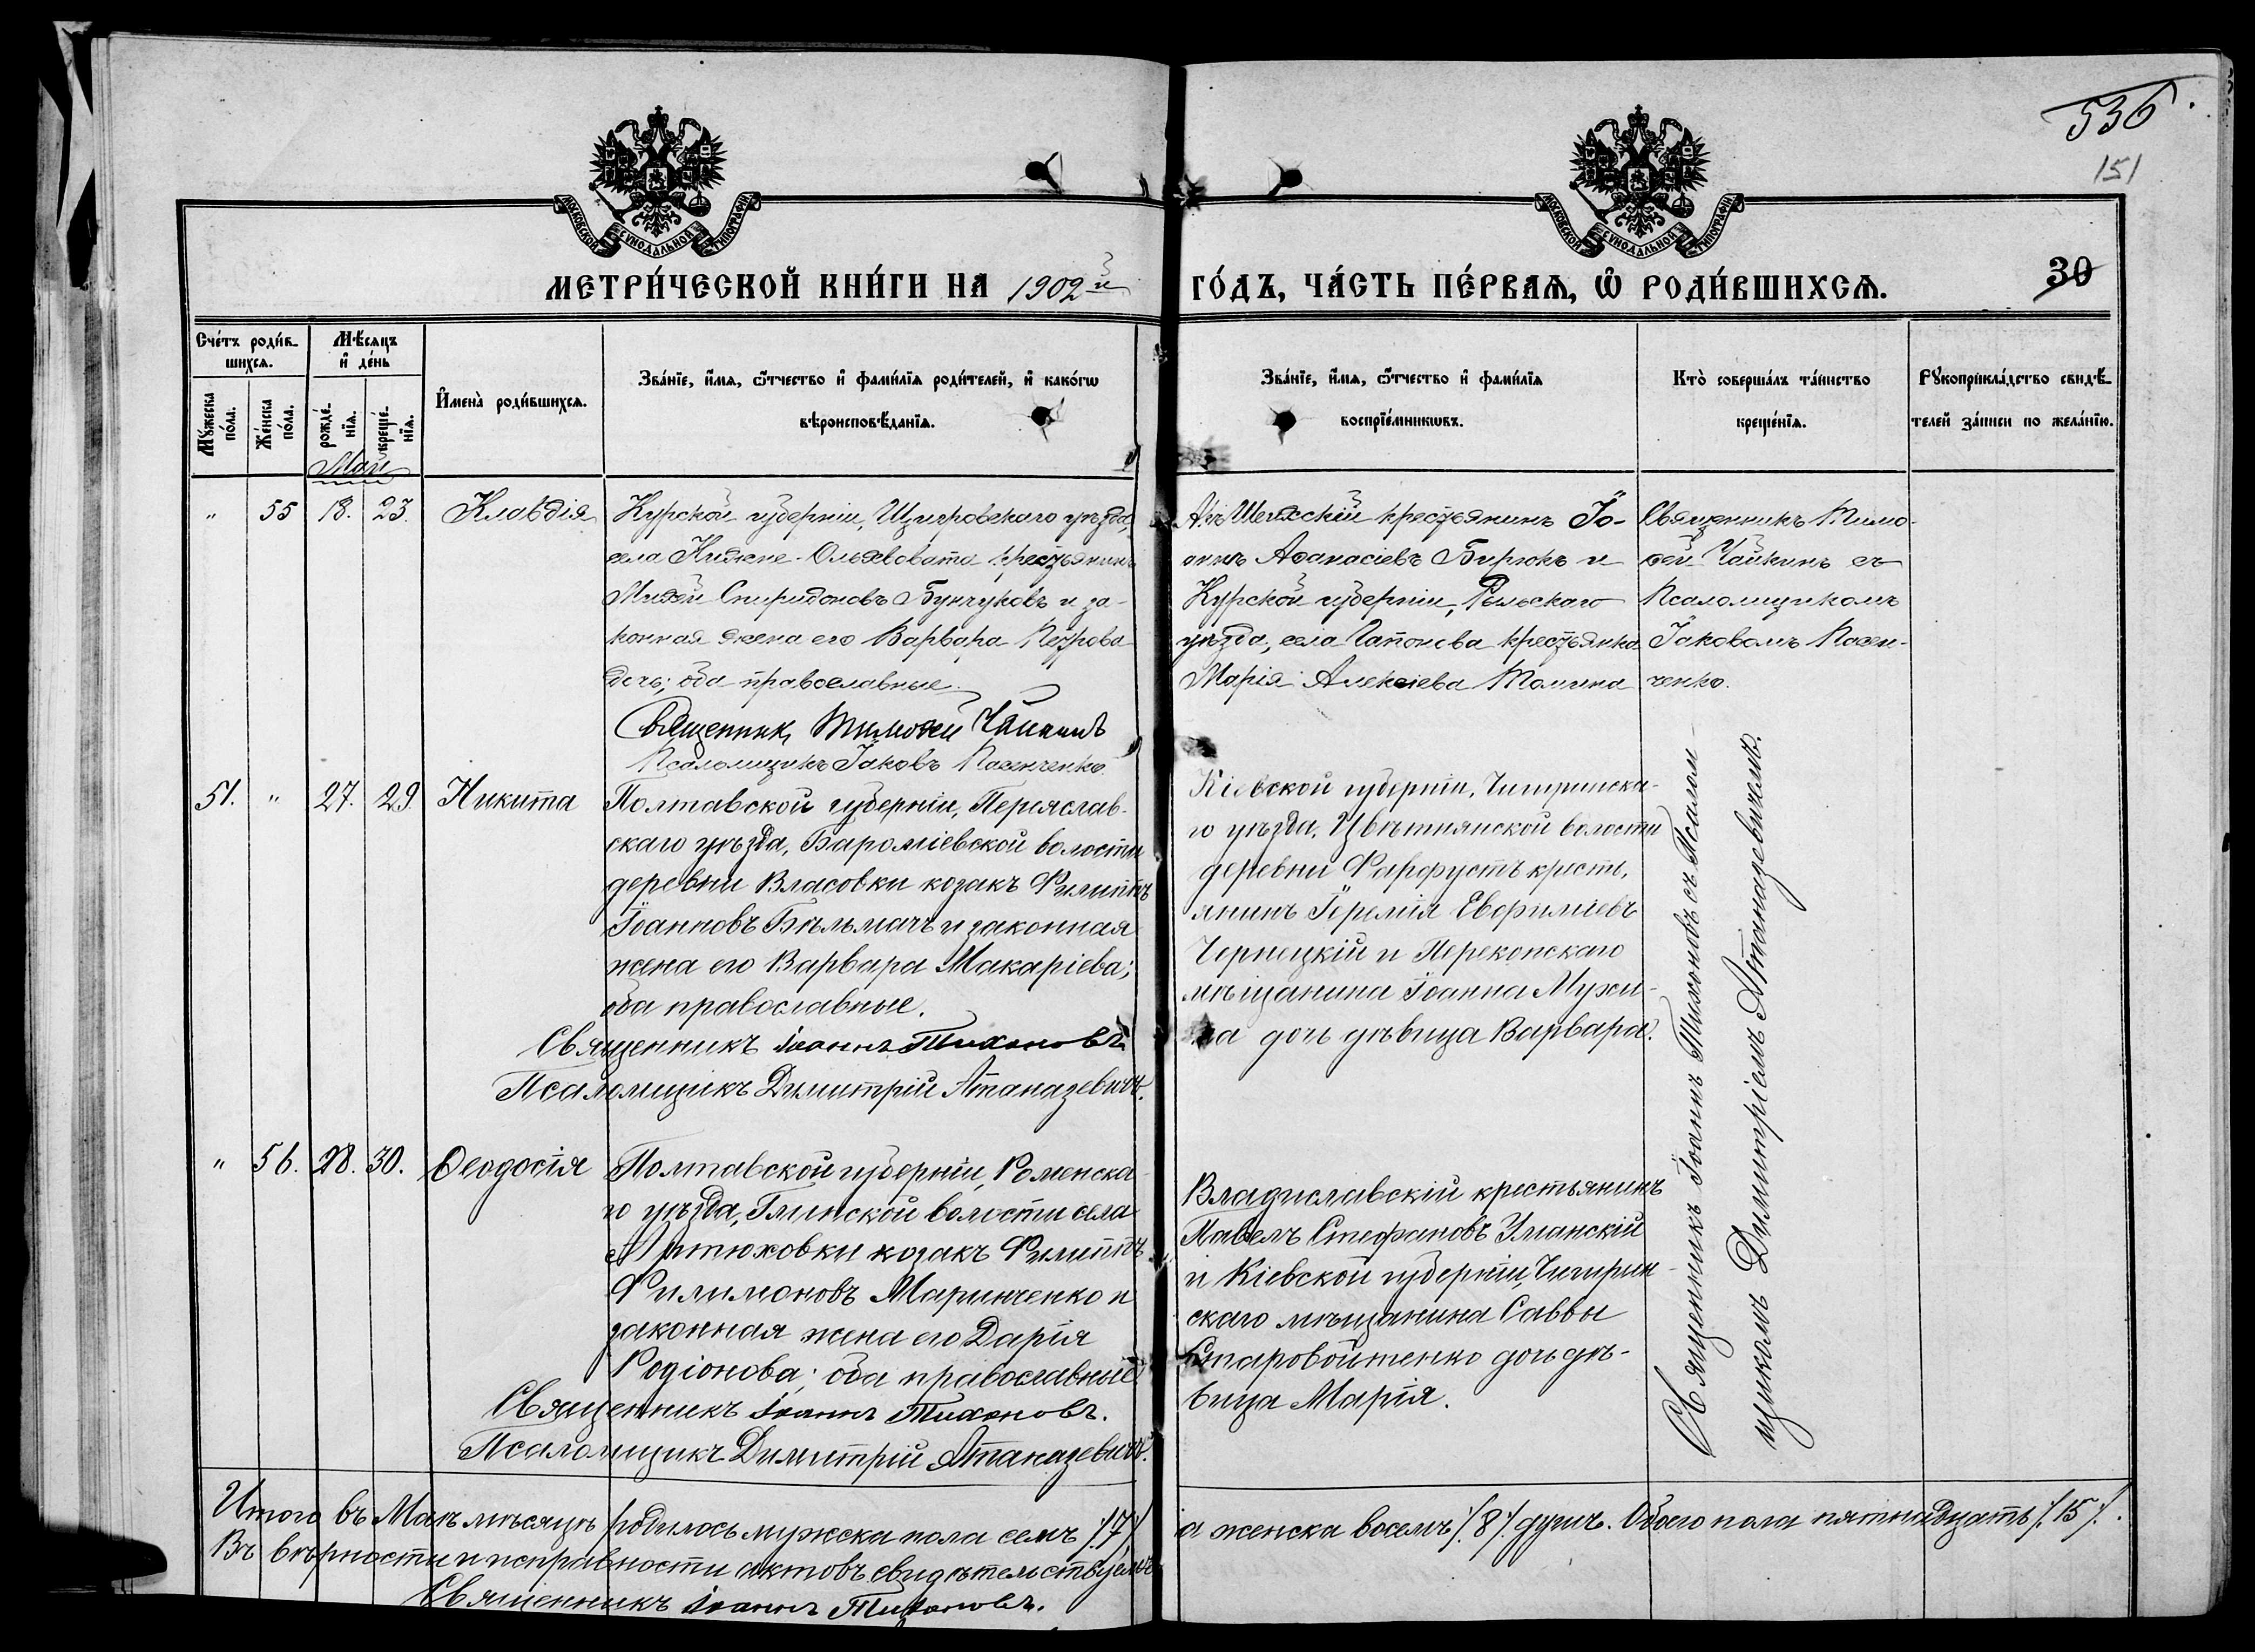 536.
151
МОСКОВСКОЙ СѴНОДАЛЬНОЙ ТИПОГРАФІИ
МОСКОВСКОЙ СѴНОДАЛЬНОЙ ТИПОГРАФІИ
МЕТРИ́ЧЕСКОЙ КНИ́ГИ НА 1902й
ГО́ДЪ, ЧА́СТЬ ПЕ́РВАѦ, Ѡ҆ РОДИ́ВШИХСѦ.
30
Сче́тъ роди́в-
шихсѧ.
Мѣ́сѧцъ
и҆ де́нь
Мꙋ́жеска
по́ла.
Же́нска
по́ла.
рожде́-
нїѧ.
креще́-
нїѧ.
И҆мена̀ роди́вшихсѧ.
Зва́нїе, и҆́мѧ, ѻ҆́тчество и҆ фамѝлїѧ роди́телей, и҆ како́гѡ
вѣроисповѣ́данїѧ.
Зва́нїе, и҆́мѧ, ѻ҆́тчество и҆ фамѝлїѧ
воспрїе́мникѡвъ.
Кто̀ соверша́лъ та́инство
креще́нїѧ.
Рꙋкоприкла́дство свидѣ́-
телей за́писи по жела́нїю.
Май
" 55 18. 23. Клавдія
Курской губерніи, Щигровскаго уѣзда,
села Нижне-Ольховата крестьянинъ
Спиридоновъ Бунчуковъ и за-
конная жена его Варвара Петрова
дочь; оба православные.
Священникъ Тимоѳей Чайкинъ
Псаломщикъ Іаковъ Пасенченко.
крестьянинъ Іо-
аннъ Аѳанасіевъ Бирюкъ и
Курской губерніи, Рыльскаго
уѣзда, села крестьянка
Марія Алексіева Томина
Священникъ Тимо-
ѳей Чайкинъ съ
Псаломщикомъ
Іаковомъ Пасен-
ченко.
51. " 27. 29. Никита
Полтавской губерніи, Переяслав-
скаго уѣзда, волости
деревни Власовки козакъ Филиппъ
Іоанновъ Бѣльмачъ и законная
жена его Варвара Макаріева;
оба православные.
Священникъ Іоаннъ Тихоновъ.
Псаломщикъ Димитрій Атаназевичъ.
Кіевской губерніи, Чигиринска-
го уѣзда, Цвѣтнянской волости
деревни крестъ,
янинъ Іеремія Евфиміевъ
Чернецкій и Перекопскаго
мѣщанина Іоанна Мухи-
на дочь дѣвица Варвара.
" 56. 28. 30. Ѳеодосія
Полтавской губерніи, Роменска-
го уѣзда, Глинской волости села
Артюховки козакъ Филиппъ
Филимоновъ Маринченко и
законная жена его Дарія
Родіонова; оба православные
Священникъ Іоаннъ Тихоновъ.
Псаломщикъ Димитрій Атаназевичъ.
Владиславскій крестьянинъ
Павелъ Стефановъ Уманскій
и Кіевской губерніи, Чигирин-
скаго мѣщанина Саввы
Старовойтенко дочь дѣ-
вица Марія.
Священникъ Іоаннъ Тихоновъ съ Псалом-
щикомъ Димитріемъ Атаназевичемъ.
Итого въ Маѣ мѣсяцѣ родилось мужска пола семь ./.7./. а женска восемь ./.8./. душъ. Обоего пола пятнадцать ./.15./.
Въ вѣрности и исправности актовъ свидѣтельствуемъ
Священникъ Іоаннъ Тихоновъ.